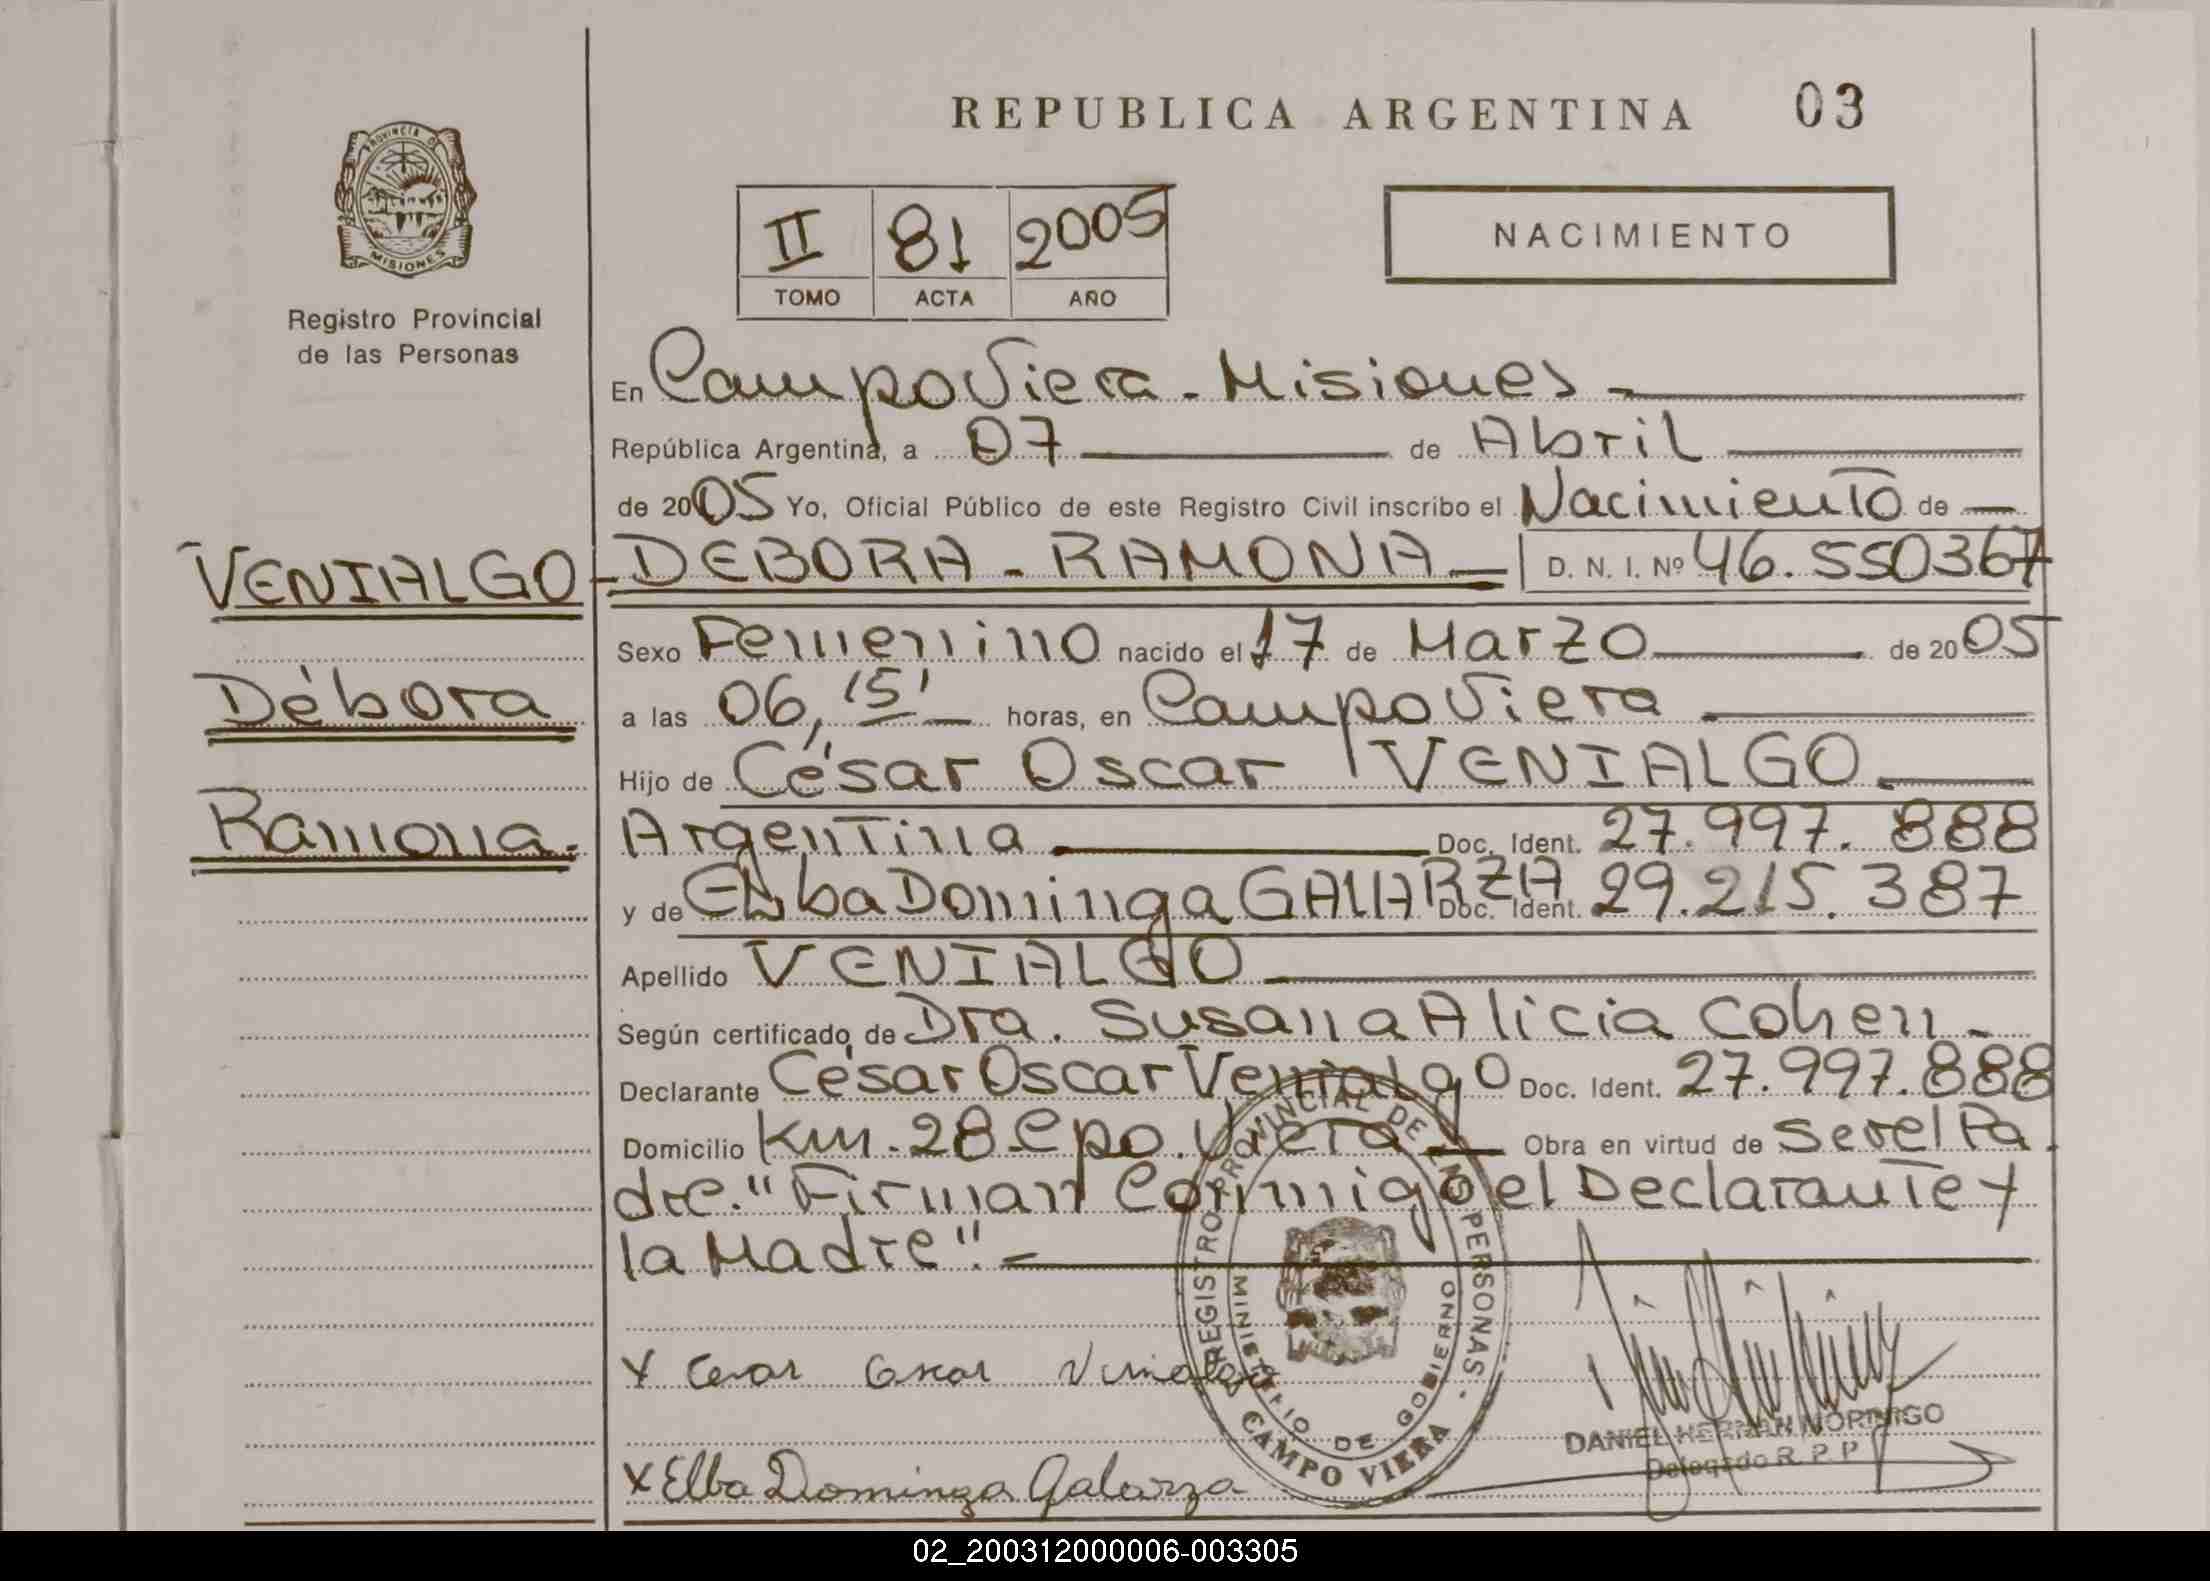 REPUBLICA ARGENTINA 03
PROVINCIA DE
MISIONES
Registro Provincial
de las Personas
II 81 2005
TOMO ACTA AÑO
NACIMIENTO
En Campo Viera - Misiones -
República Argentina, a 07 de Abril
de 2005 Yo, Oficial Público de este Registro Civil inscribo el Nacimiento de
VENIALGO - DEBORA - RAMONA - D. N. I. Nº 46.550367
Sexo Femenino nacido el 17 de Marzo de 2005
Débora
a las 06,15' horas, en Campo Viera
Hijo de César Oscar VENIALGO.
Ramona.
Argentina Doc. Ident. 27.997.888
y de Elba Dominga GALARZA Doc. Ident. 29.215.387
Apellido VENIALGO
Según certificado de Dra. Susana Alicia Cohen -
Declarante César Oscar Venialgo Doc. Ident. 27.997.888
Domicilio Km. 28 Cpo. Viera Obra en virtud de ser el Pa
dre. "Firman Conmigo el Declarante y
la Madre". -
REGISTRO PROVINCIAL DE LAS PERSONAS -
MINISTERIO DE GOBIERNO
CAMPO VIERA
x Cesar Oscar Venialgo
DANIEL HERNAN MORINIGO
Delegado R. P. P.
x Elba Dominga Galarza
02_200312000006-003305